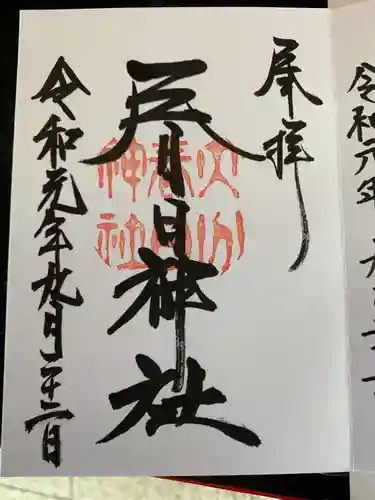 令和元年
奉拝
春日神社
大分
春日
神社
令和元年九月二十二日